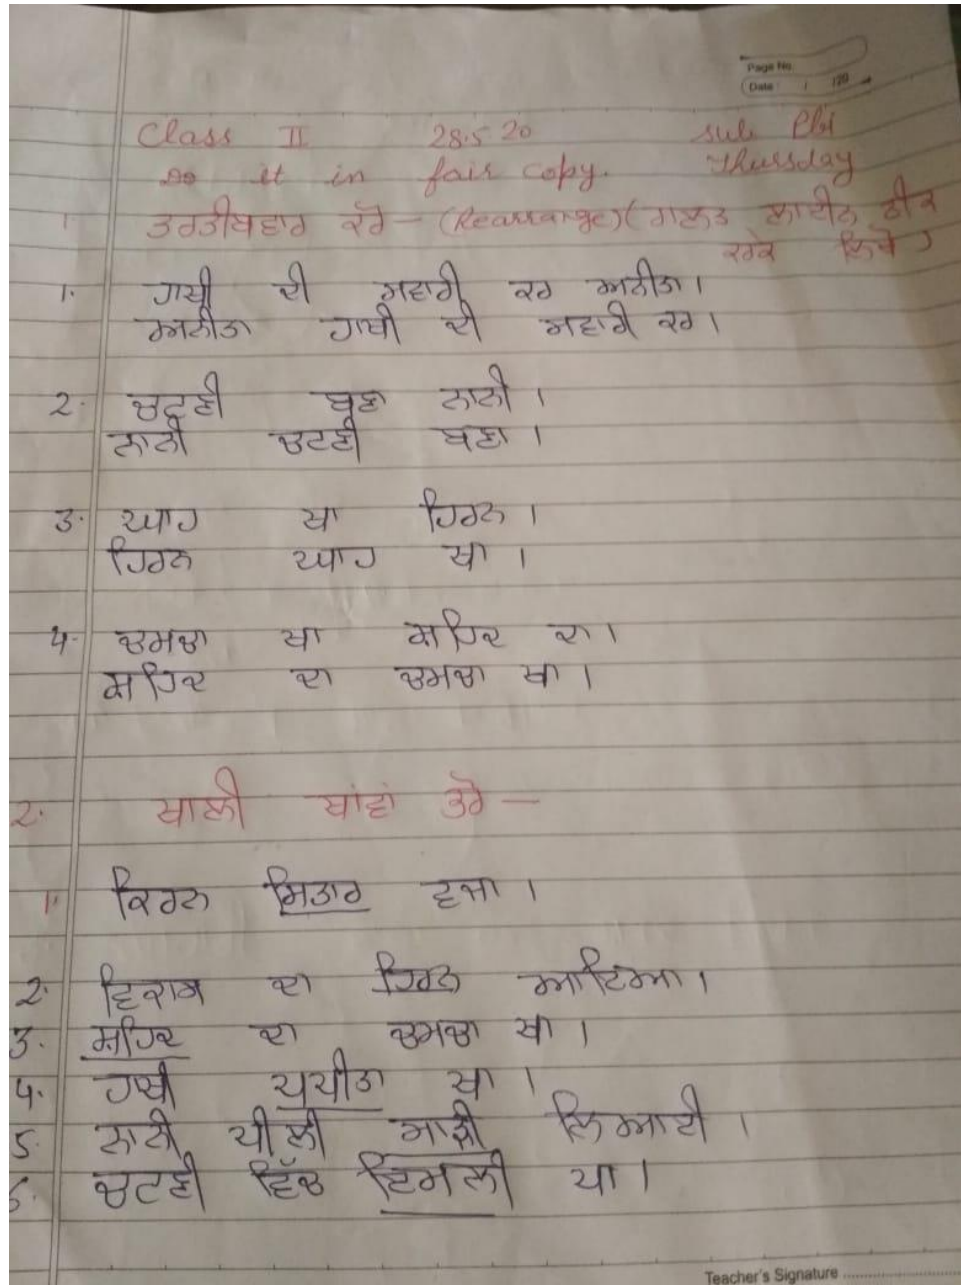 Page No.
Date / /20
Class II 28.5.20 Sub Pbi
Do it in fair copy. Thursday
1 ਤਰਤੀਬਵਾਰ ਕਰੋ - (Rearrange) (ਗਲਤ ਲਾਈਨ ਠੀਕ
ਕਰਕੇ ਲਿਖੋ)
1. ਹਾਥੀ ਦੀ ਸਵਾਰੀ ਕਰ ਅਨੀਤਾ।
ਅਨੀਤਾ ਹਾਥੀ ਦੀ ਸਵਾਰੀ ਕਰ।
2. ਚਟਣੀ ਬਣਾ ਨਾਨੀ।
ਨਾਨੀ ਚਟਣੀ ਬਣਾ।
3. ਘਾਹ ਖਾ ਹਿਰਨ।
ਹਿਰਨ ਘਾਹ ਖਾ।
4. ਚਮਚਾ ਖਾ ਸ਼ਹਿਦ ਦਾ।
ਸ਼ਹਿਦ ਦਾ ਚਮਚਾ ਖਾ।
2. ਖਾਲੀ ਥਾਂਵਾਂ ਭਰੋ -
1. ਕਿਰਨ ਸਿਤਾਰ ਵਜਾ।
2. ਵਿਕਾਸ ਦਾ ਹਿਰਨ ਆਇਆ।
3. ਸ਼ਹਿਦ ਦਾ ਚਮਚਾ ਖਾ।
4. ਹਾਥੀ ਪਪੀਤਾ ਖਾ।
5. ਨਾਨੀ ਪੀਲੀ ਸਾੜੀ ਲਿਆਈ।
6. ਚਟਣੀ ਵਿੱਚ ਇਮਲੀ ਪਾ।
Teacher's Signature